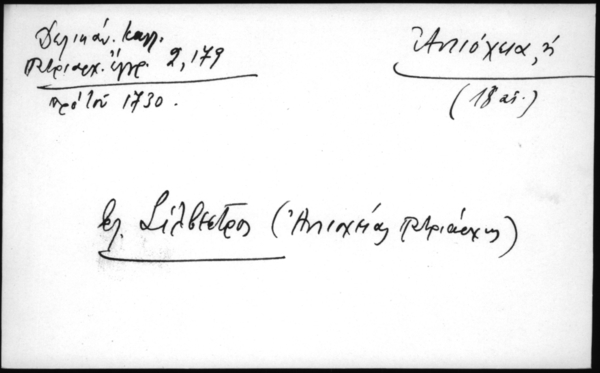 Δελικάν. Καλλ.
Πατριαρχ. ἔγγρ. 2, 179
πρὸ τοῦ 1730.
Ἀντιόχεια, ἡ
(18 αἰ.)
βλ. Σίλβεστρος (Ἀντιοχείας Πατριάρχης)